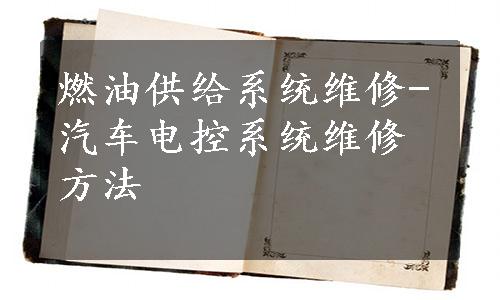 燃油供给系统维修-
汽车电控系统维修
方法